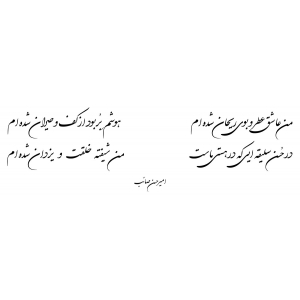 من عاشق عطر و بوی ریحان شده ام هوشم بربود از کف و حیران شده ام
در حُسن سلیقه ایی که در هستی ماست من شیفته خلقت و یزدان شده ام
امیرحسن صائب